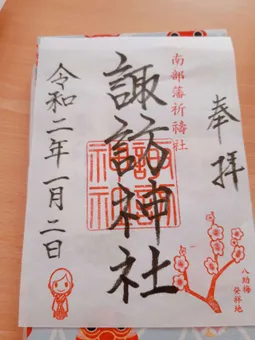 奉拝
南部藩祈禱社
諏訪神社
令和二年一月二日
八助梅
発祥地